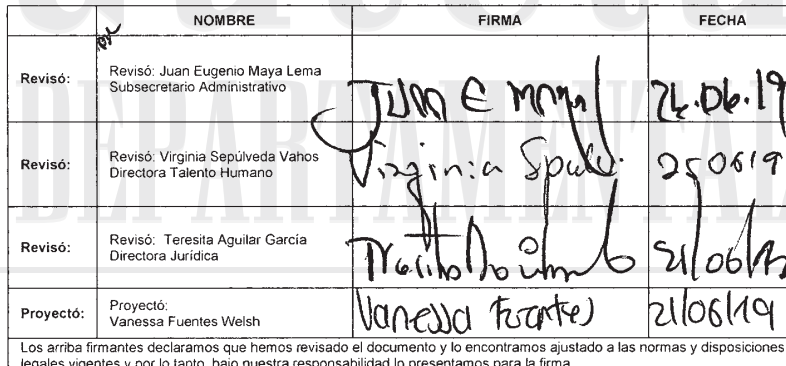 NOMBRE FIRMA FECHA
Revisó: Revisó: Juan Eugenio Maya Lema
Subsecretario Administrativo
JUAN E MAYA 26.06.19
Revisó: Revisó: Virginia Sepúlveda Vahos
Directora Talento Humano
Virginia 25 06 19
Revisó: Revisó: Teresita Aguilar García
Directora Jurídica
21/06/
Proyectó: Proyectó:
Vanessa Fuentes Welsh
Vanessa Fuentes 21/06/19
Los arriba firmantes declaramos que hemos revisado el documento y lo encontramos ajustado a las normas y disposiciones
legales vigentes y por lo tanto, bajo nuestra responsabilidad lo presentamos para la firma.
DEPARTAMENTAL